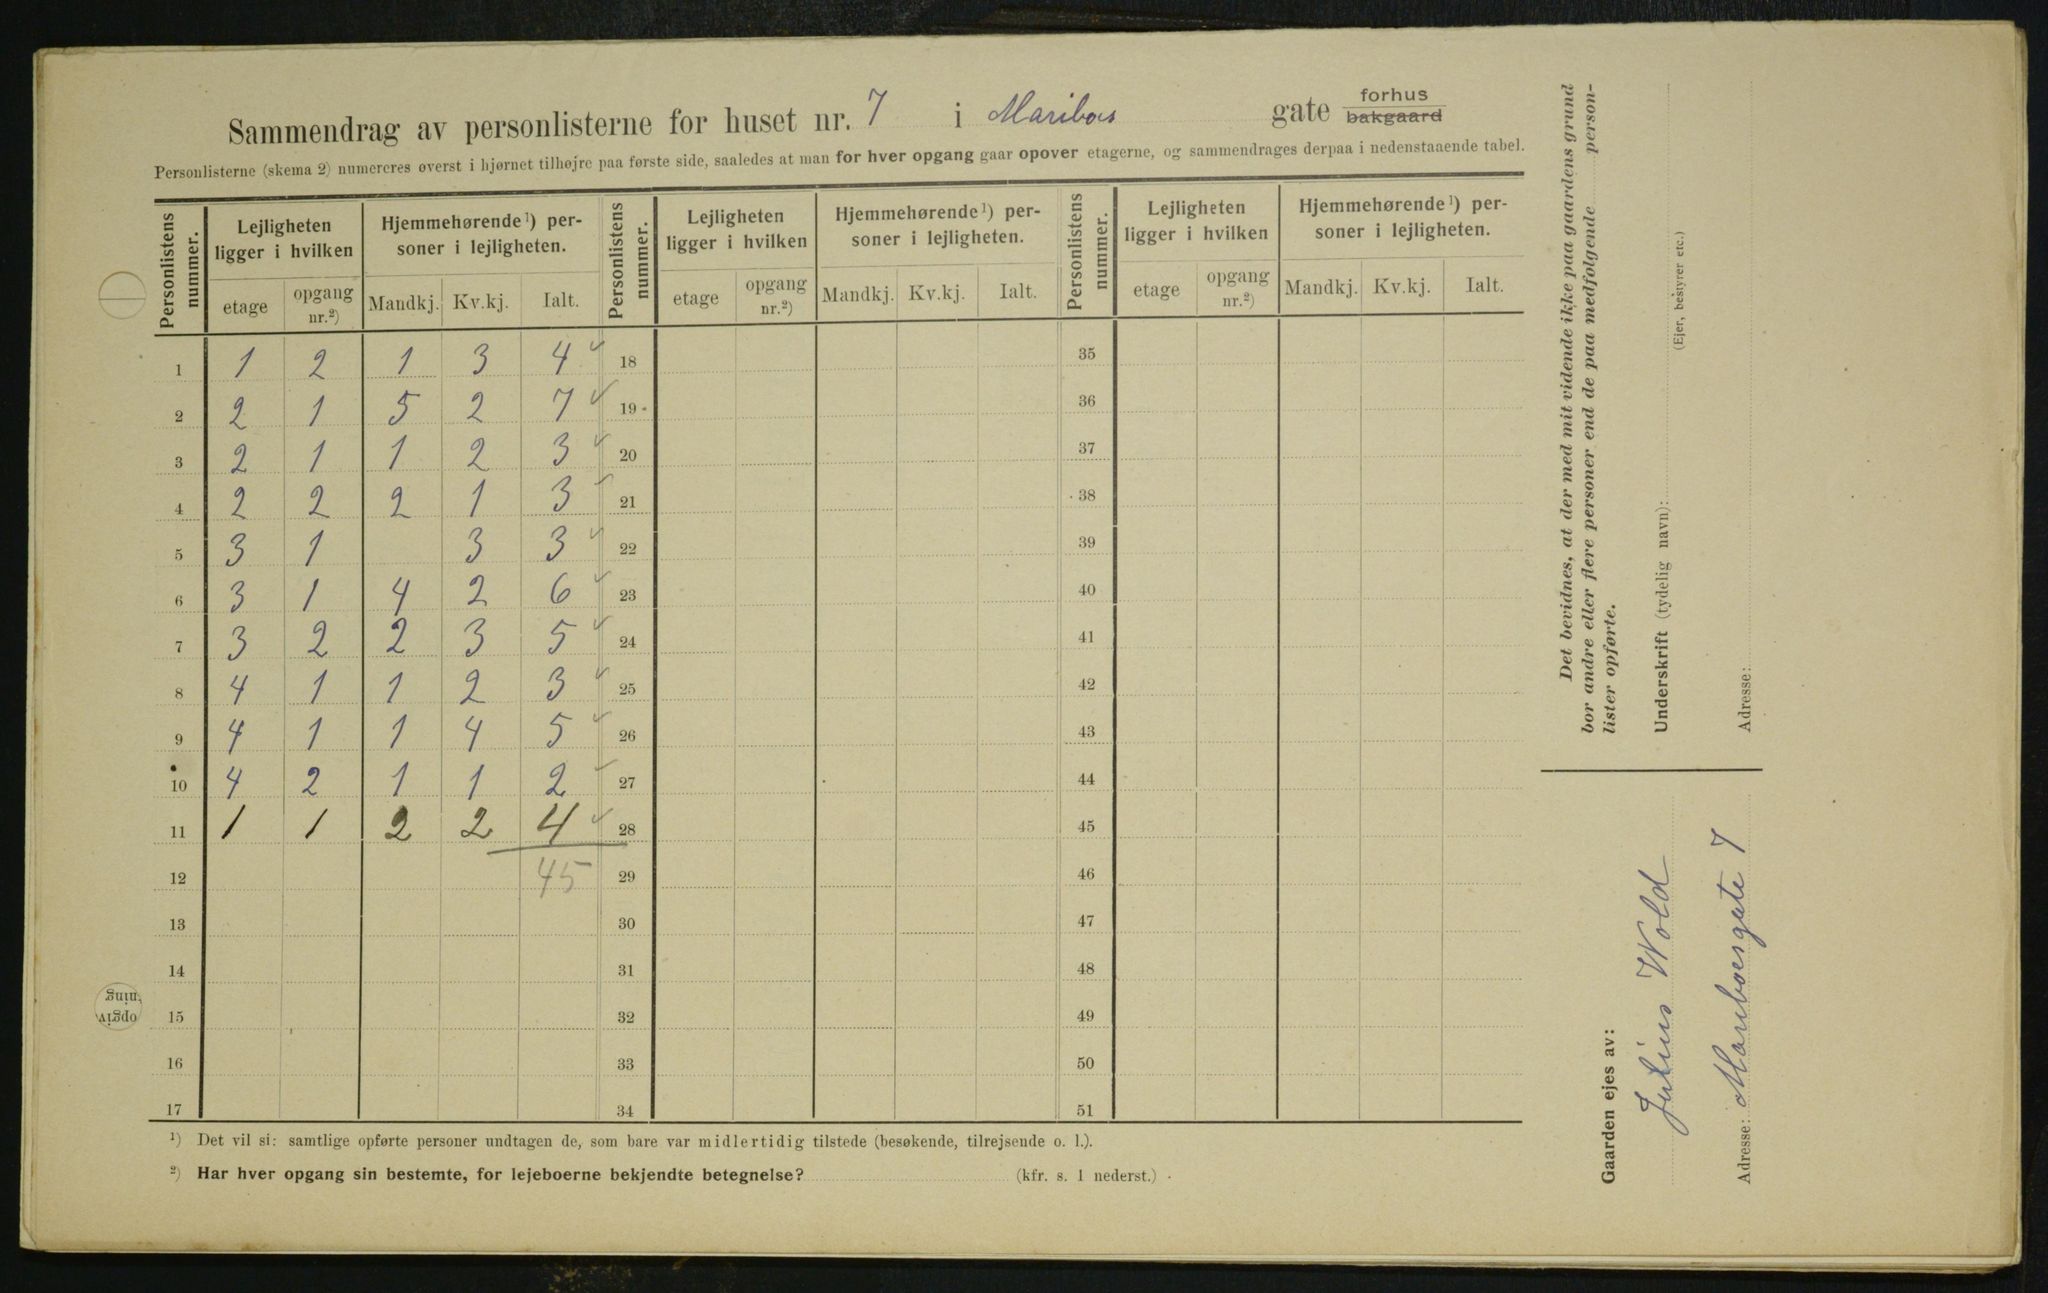 Sammendrag av personlisterne for huset nr. 7 i Mariboes gate forhus bakgaard
Personlisterne (skema 2) numereres øverst i hjørnet tilhøjre paa første side, saaledes at man for hver opgang gaar opover etagerne, og sammendrages derpaa i nedenstaaende tabel.
Personlistens nummer. Lejligheten ligger i hvilken Hjemmehørende¹) personer i lejligheten. Personlistens nummer. Lejligheten ligger i hvilken Hjemmehørende¹) personer i lejligheten. Personlistens nummer. Lejligheten ligger i hvilken Hjemmehørende¹) personer i lejligheten.
etage opgang nr.²) Mandkj. Kv.kj. Ialt. etage opgang nr.²) Mandkj. Kv.kj. Ialt. etage opgang nr.²) Mandkj. Kv.kj. Ialt.
1 1 2 1 3 4 ✓ 18 35
2 2 1 5 2 7 ✓ 19 36
3 2 1 1 2 3 ✓ 20 37
4 2 2 2 1 3 ✓ 21 38
5 3 1 3 3 ✓ 22 39
6 3 1 4 2 6 ✓ 23 40
7 3 2 2 3 5 ✓ 24 41
8 4 1 1 2 3 ✓ 25 42
9 4 1 1 4 5 ✓ 26 43
10 4 2 1 1 2 ✓ 27 44
11 1 1 2 2 4 ✓ 28 45
12 45 29 46
13 30 47
14 31 48
15 32 49
16 33 50
17 34 51
¹) Det vil si: samtlige opførte personer undtagen de, som bare var midlertidig tilstede (besøkende, tilrejsende o. l.).
²) Har hver opgang sin bestemte, for lejeboerne bekjendte betegnelse? (kfr. s. 1 nederst.)
Det bevidnes, at der med mit vidende ikke paa gaardens grund
bor andre eller flere personer end de paa medfølgende person-
lister opførte.
Underskrift (tydelig navn):
(Ejer, bestyrer etc.)
Adresse:
Gaarden ejes av:
Julius Wold
Adresse: Mariboesgate 7